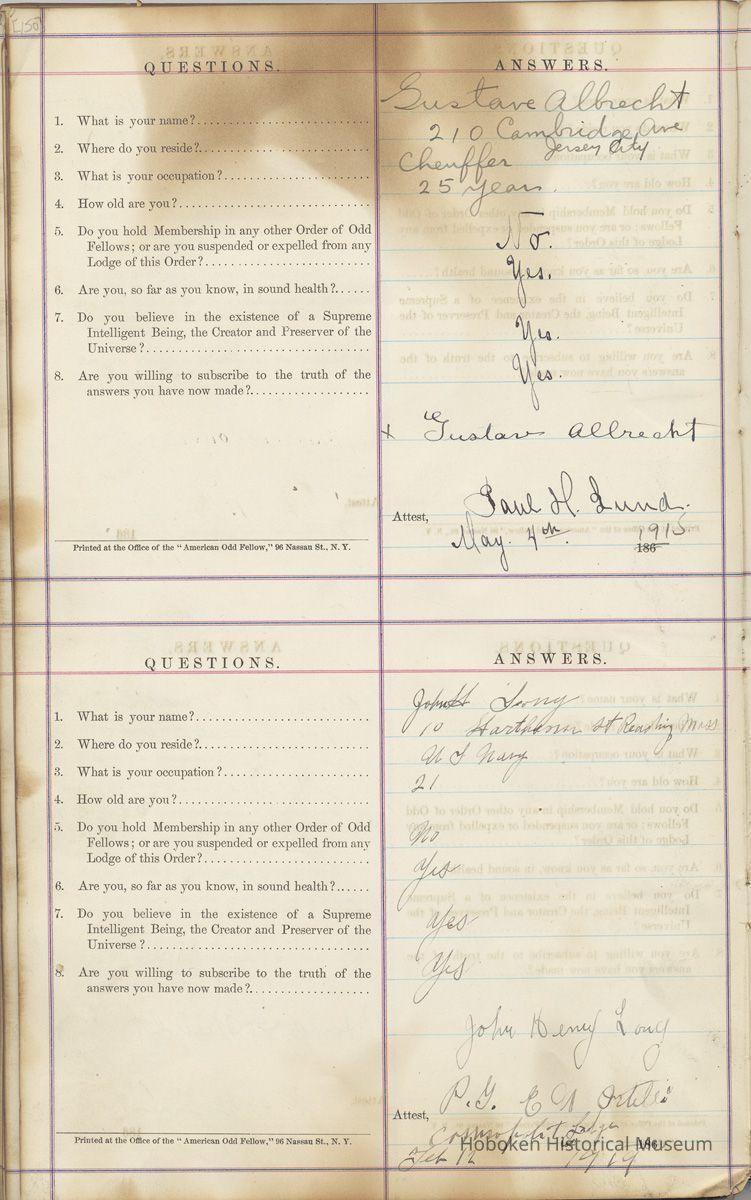 [150]
QUESTIONS.
ANSWERS.
1. What is your name?
Gustave Albrecht
2. Where do you reside?
210 Cambridge Ave
Jersey City
3. What is your occupation?
Cheuffer
4. How old are you?
25 years.
5. Do you hold Membership in any other Order of Odd
Fellows; or are you suspended or expelled from any
Lodge of this Order?
No.
6. Are you, so far as you know, in sound health?
Yes.
7. Do you believe in the existence of a Supreme
Intelligent Being, the Creator and Preserver of the
Universe?
Yes.
8. Are you willing to subscribe to the truth of the
answers you have now made?
Yes.
x Gustav Albrecht
Attest, Paul H. Lund.
May. 4th. 1915
186
Printed at the Office of the "American Odd Fellow," 96 Nassau St., N. Y.
QUESTIONS.
ANSWERS.
1. What is your name?
John H Long
2. Where do you reside?
10 St Reading Mass
3. What is your occupation?
U S Navy
4. How old are you?
21
5. Do you hold Membership in any other Order of Odd
Fellows; or are you suspended or expelled from any
Lodge of this Order?
No
6. Are you, so far as you know, in sound health?
Yes
7. Do you believe in the existence of a Supreme
Intelligent Being, the Creator and Preserver of the
Universe?
Yes
8. Are you willing to subscribe to the truth of the
answers you have now made?
Yes
John Henry Long
Attest, P. G.
Lodge
186
Feb 12 1919
Printed at the Office of the "American Odd Fellow," 96 Nassau St., N. Y.
Hoboken Historical Museum